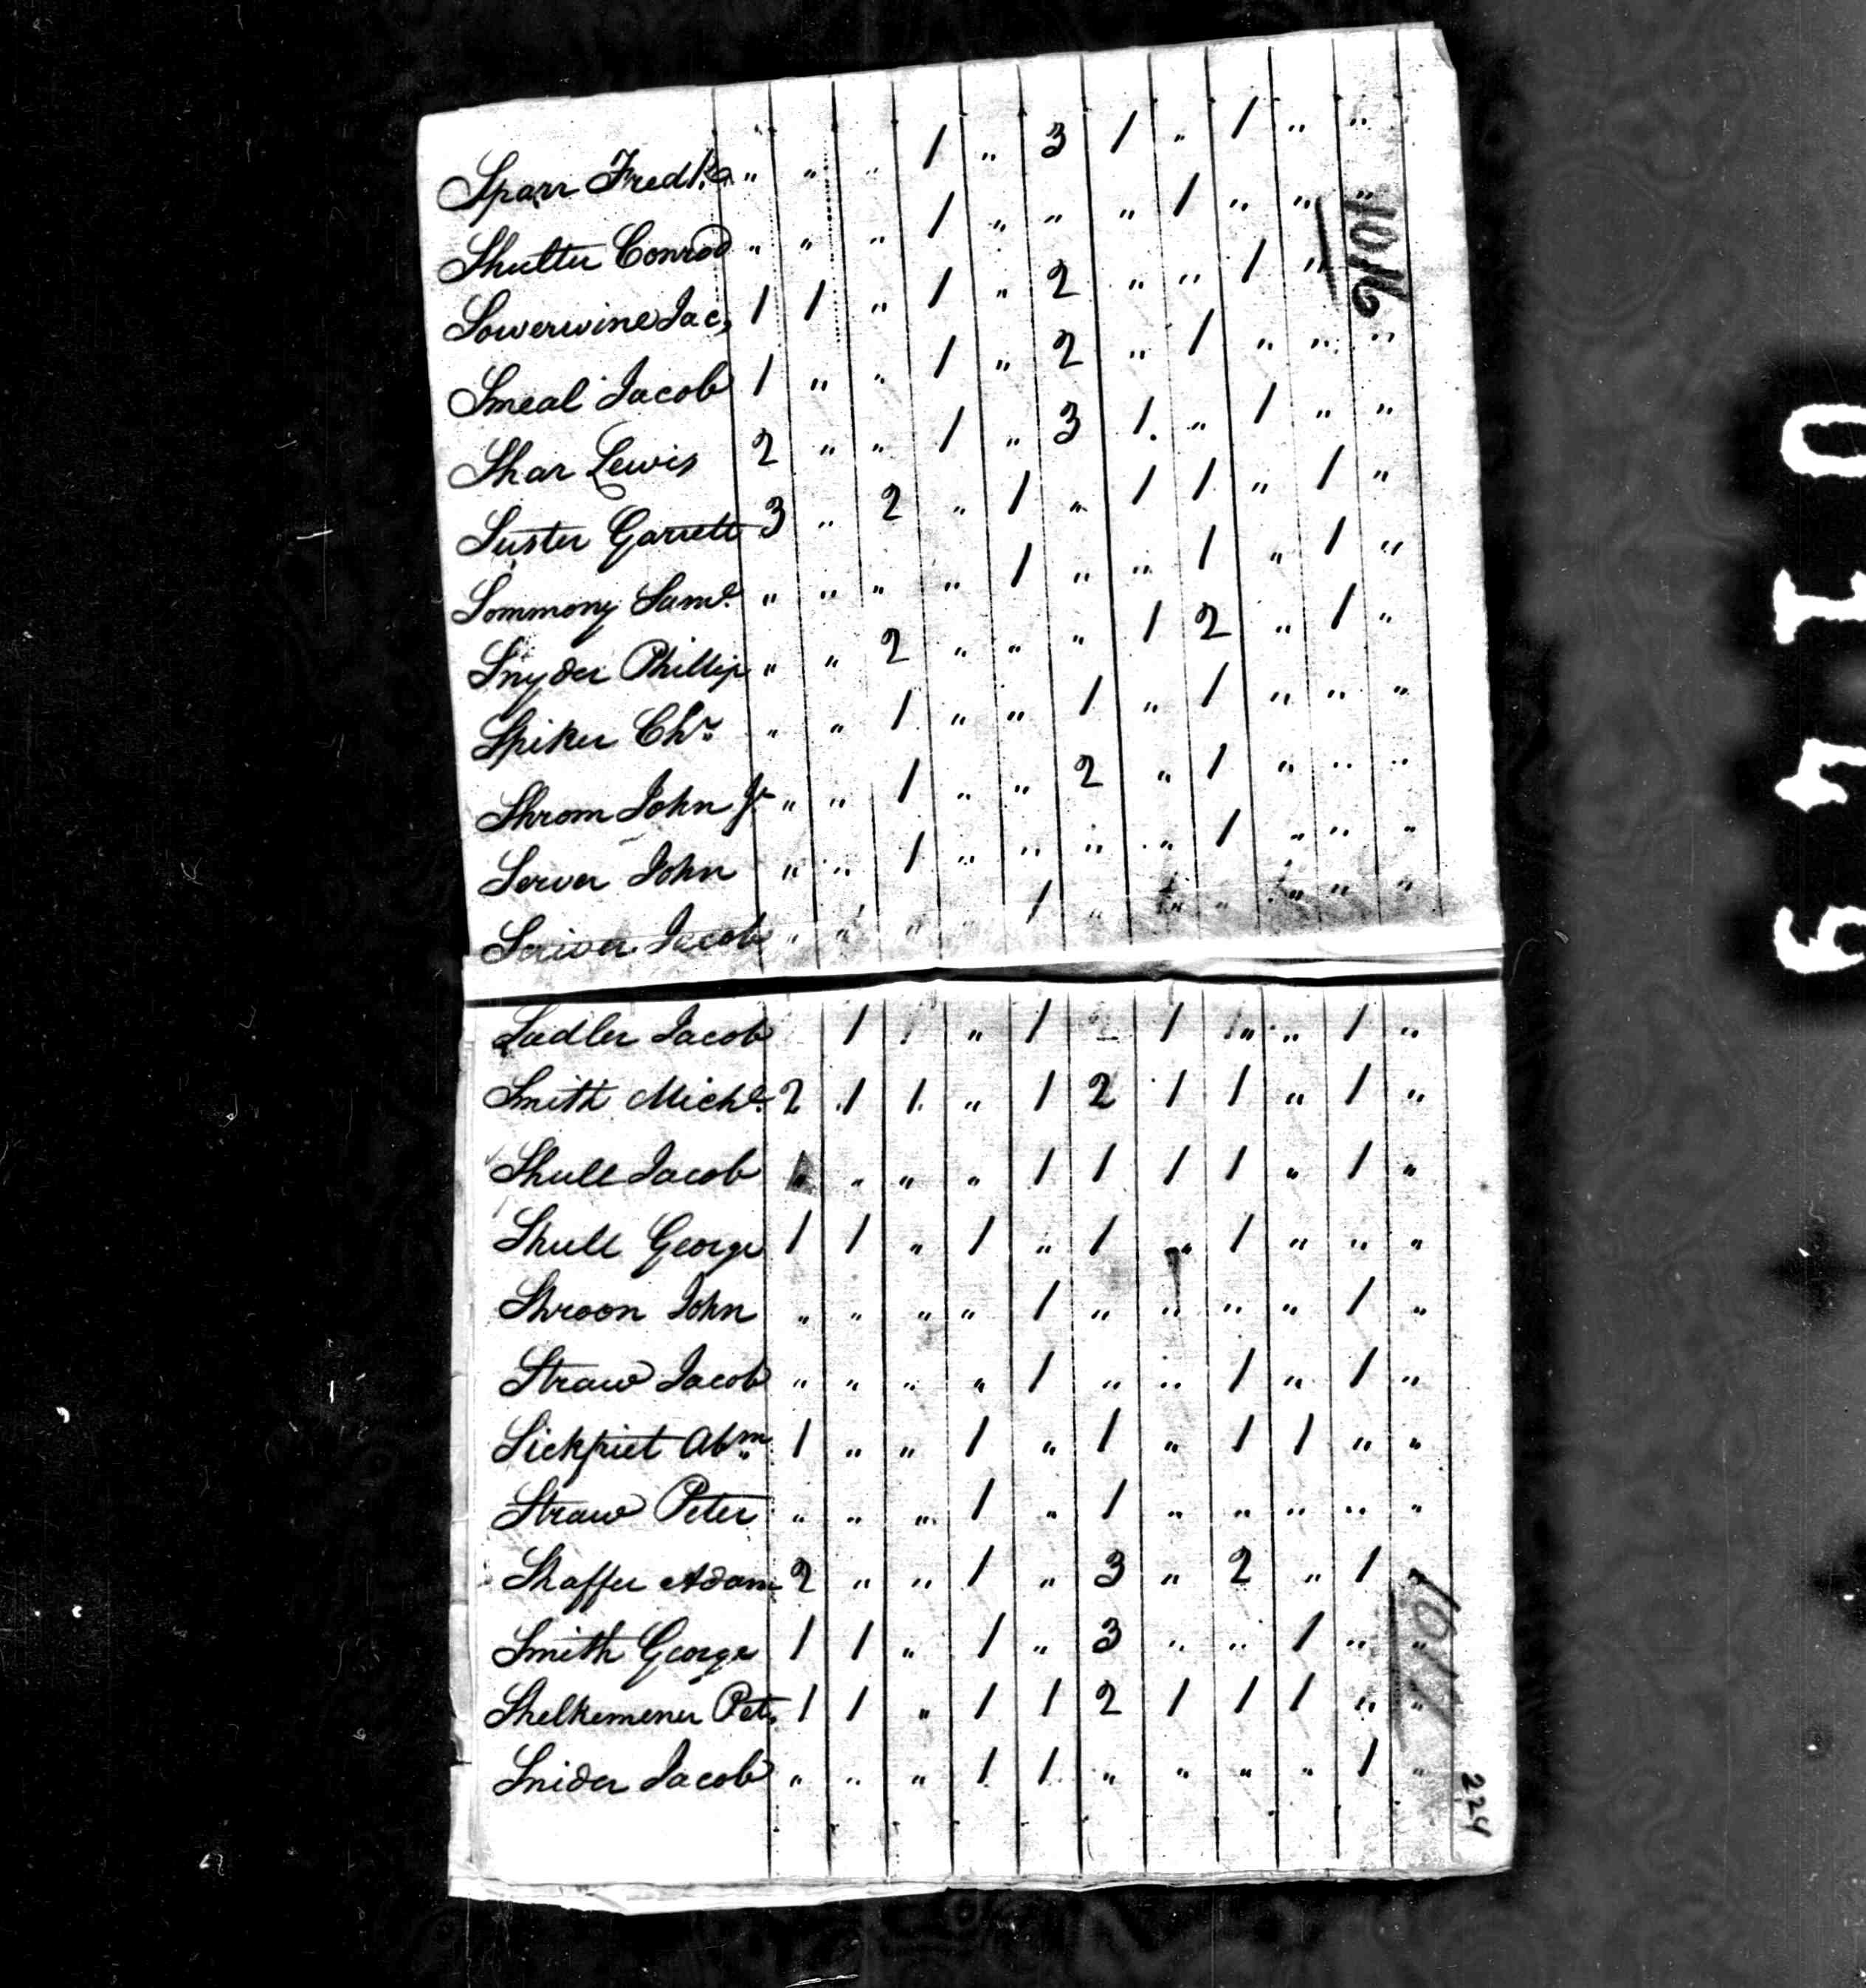 Sparr Fredk. " " " 1 " 3 1 " 1 " "
Shulter Conrod " " " 1 " " " 1 " " "
Sowerwine Jac, 1 1 " 1 " 2 " " 1 "
1016
Smeal Jacob 1 " " 1 " 2 " 1 " " "
Shar Lewis 2 " " 1 " 3 1 " 1 " "
Suster Garrett 3 " 2 " 1 " 1 1 " 1 "
Sommony Saml. " " " " 1 " " 1 " 1 "
Snyder Phillip " " 2 " " " 1 2 " 1 "
Spiker Chr. " " 1 " " 1 " 1 " " "
Shrom John Jr " " 1 " " 2 " 1 " " "
Server John " " 1 " " " " 1 " " "
Jacob " " " " 1 " " " " " "
Sadler Jacob 1 " 1 1 " " 1 "
Smith Michl. 2 1 1 " 1 2 1 1 " 1 "
Shull Jacob " " " " 1 1 1 1 " 1 "
Shull George 1 1 " 1 " 1 " 1 " " "
Shroon John " " " " 1 " " " " 1 "
Straw Jacob " " " " 1 " " 1 " 1 "
Sickfriet Abm. 1 " " 1 " 1 " 1 1 " "
Straw Peter " " " 1 " 1 " " " " "
Shaffer Adam 2 " " 1 " 3 " 2 " 1 "
Smith George 1 1 " 1 " 3 " " 1 " "
1017
Shelkemener Pet, 1 1 " 1 1 2 1 1 1 " "
Snider Jacob " " " 1 1 " " " " 1 "
224